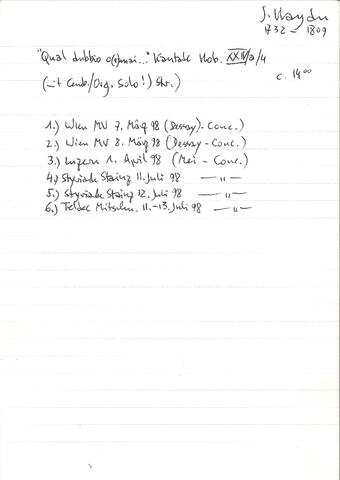 J. Haydn
1732 – 1809
"Qual dubbio o(r)mai..." Kantate Hob. XXIV/a/4
c. 14⁰⁰
(mit Cemb./Org. Solo!) Str.)
1.) Wien MV 7. März 98 (Dessay) - Conc.)
2.) Wien MV 8. März 98 (Dessay - Conc.)
3.) Luzern 1. April 98 (Mei - Conc.)
4.) Styriarte Stainz 11. Juli 98 — " —
5.) Styriarte Stainz 12. Juli 98 — " —
6.) Teldec Mitschn. 11. - 13. Juli 98 — " —